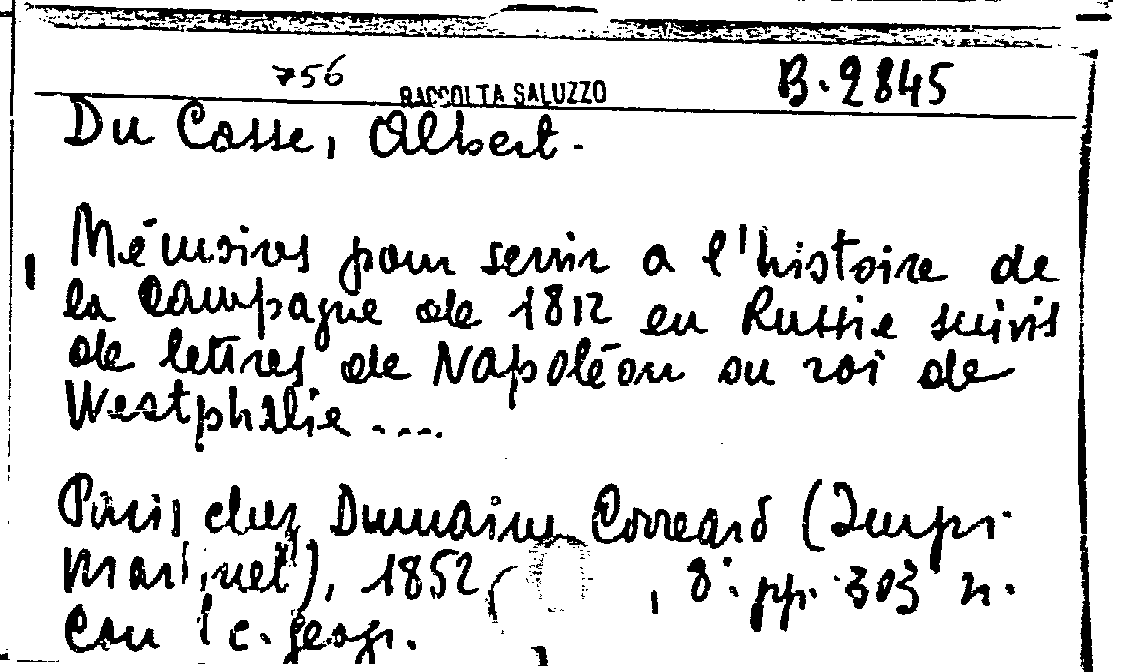 756 RACCOLTA SALUZZO B.2845
Du Casse, Albert.
Mémoires pour servir a l'histoire de
la Campagne de 1812 en Russie suivis
de lettres de Napoléon au roi de
Westphalie ....
Paris chez Dumaine Correard (Impr.
Martinet), 1852 , 8° pp. 303 n.
con 1 c. geogr.